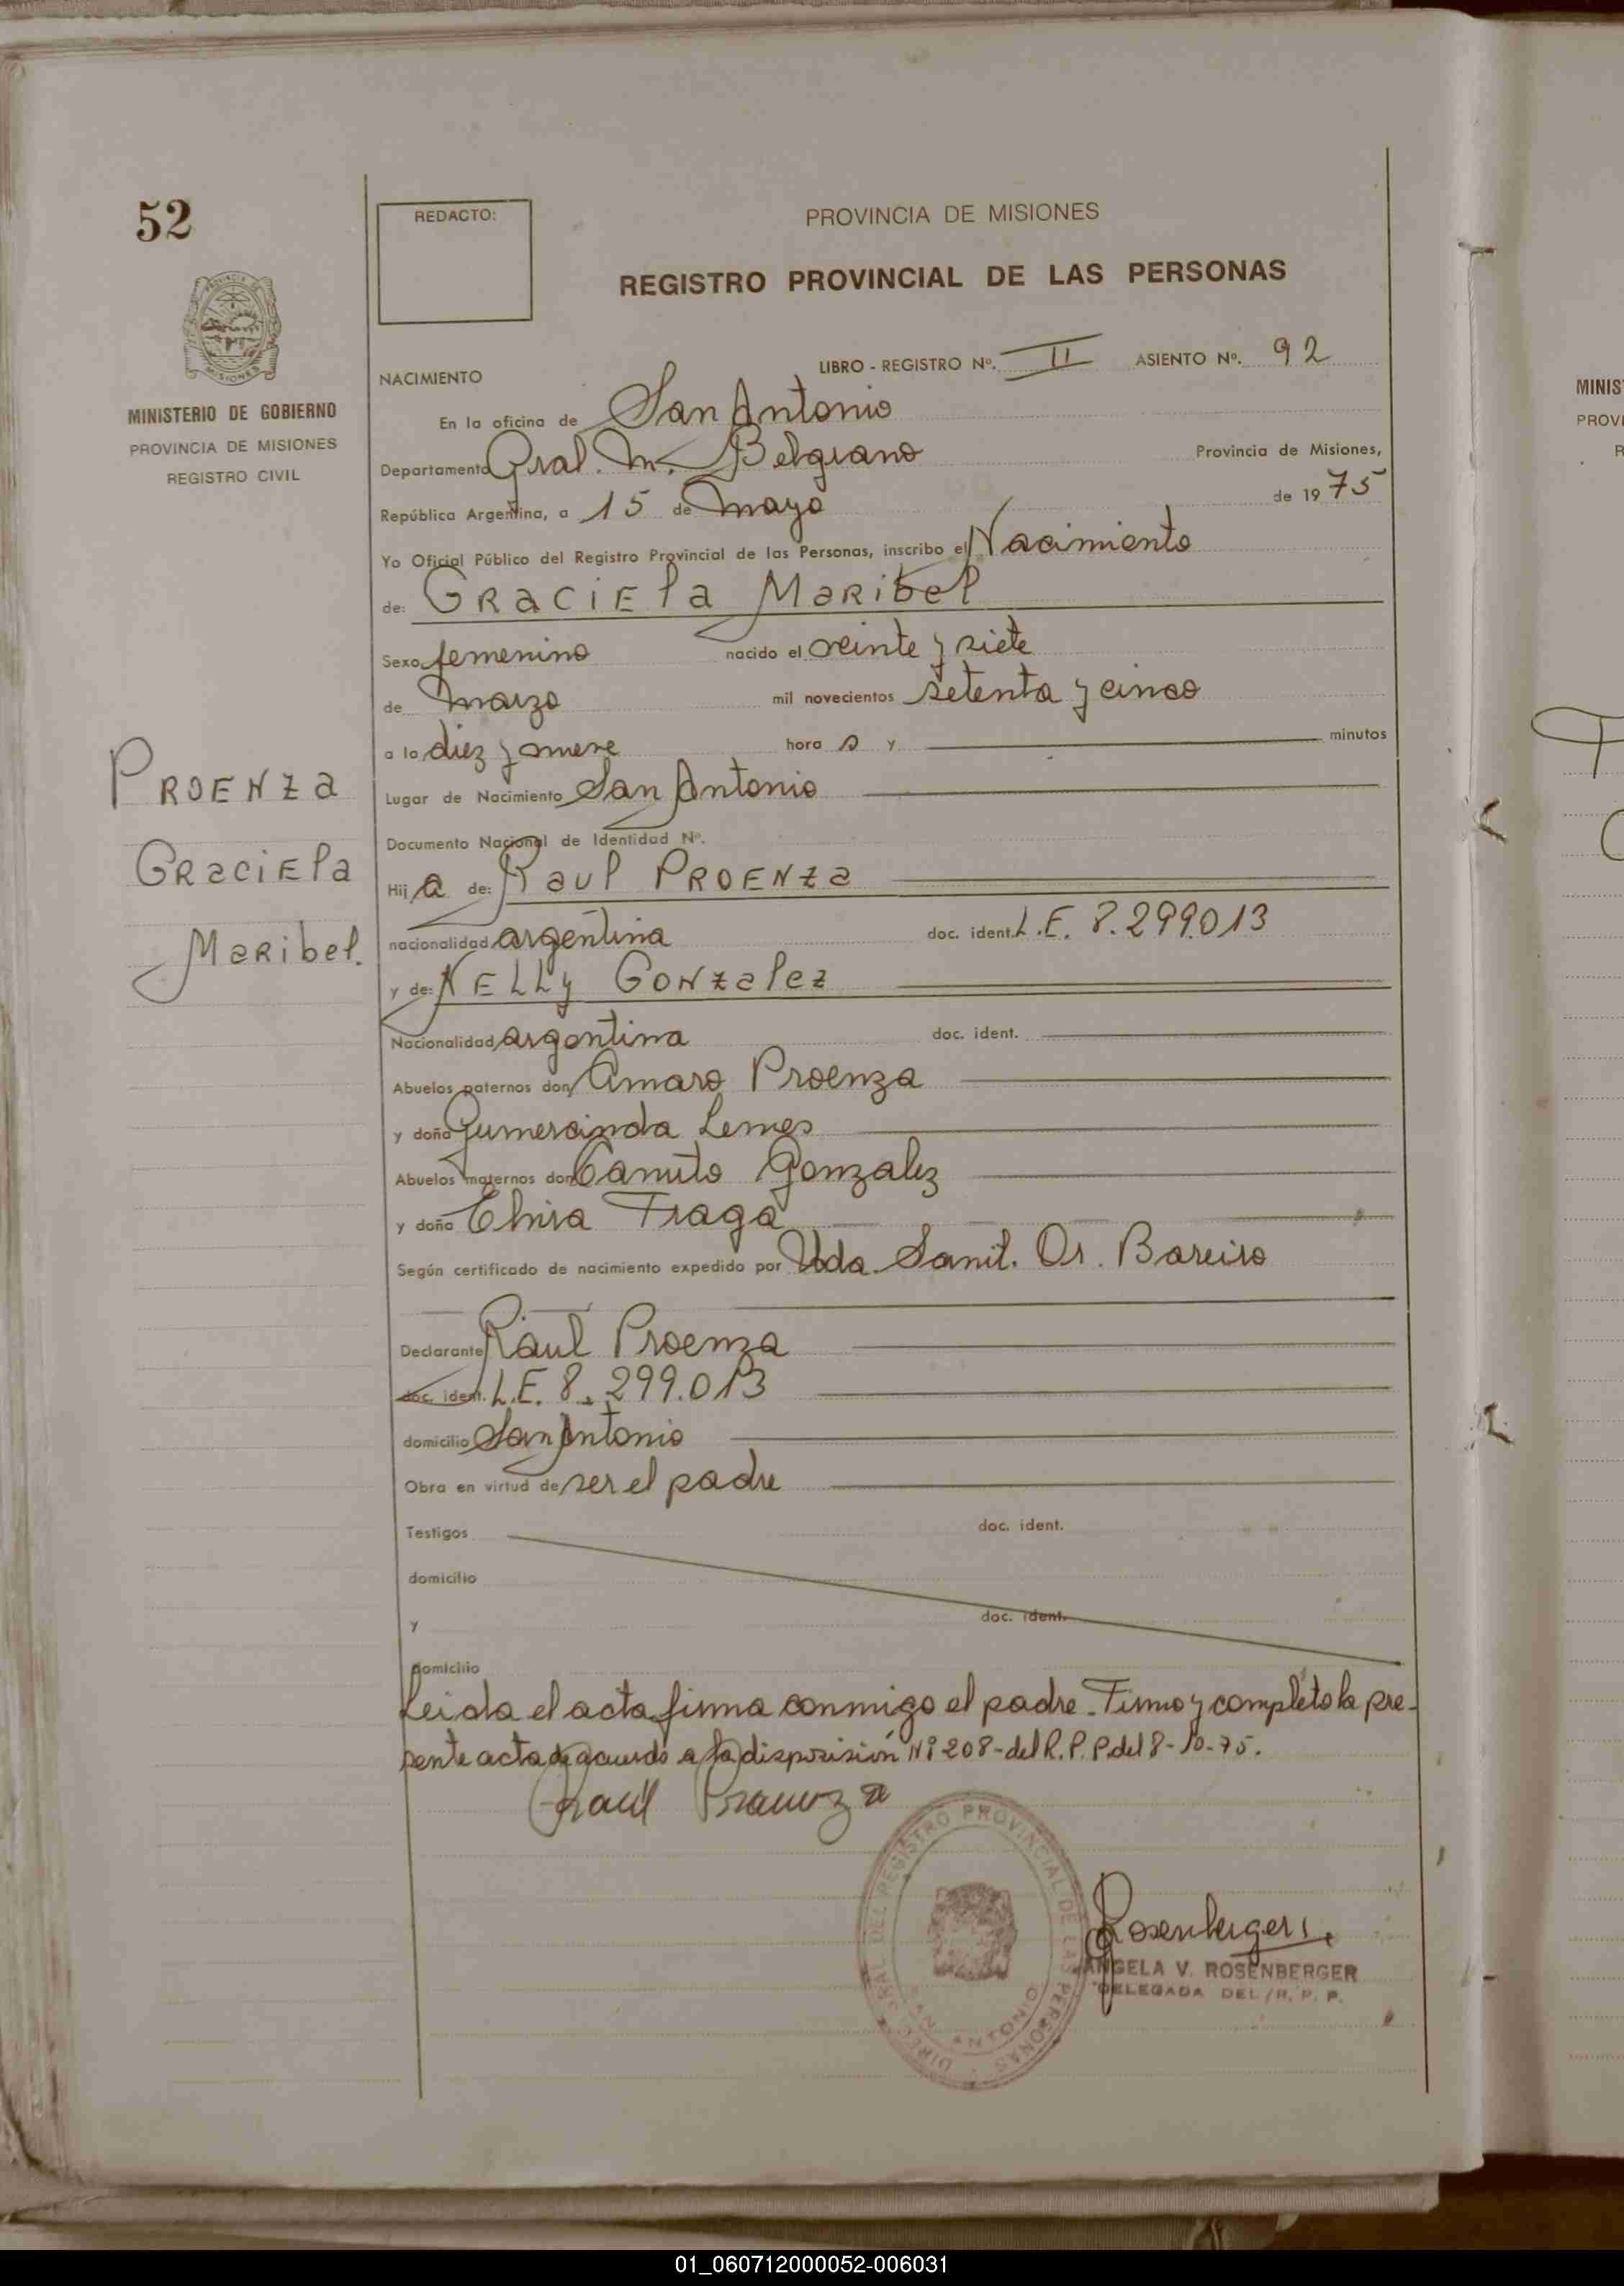 52
REDACTO:
PROVINCIA DE MISIONES
REGISTRO PROVINCIAL DE LAS PERSONAS
MINISTERIO DE GOBIERNO
PROVINCIA DE MISIONES
REGISTRO CIVIL
LIBRO - REGISTRO Nº. II ASIENTO Nº. 92
NACIMIENTO
En la oficina de San Antonio
Departamento Gral. M. Belgrano Provincia de Misiones,
República Argentina, a 15 de mayo de 1975
Yo Oficial Público del Registro Provincial de las Personas, inscribo el Nacimiento
de: GRaCiEla MaRibel
Sexo femenino nacido el veinte y siete
de marzo mil novecientos setenta y cinco
a la diez y nueve hora s y minutos
Lugar de Nacimiento San Antonio
Documento Nacional de Identidad Nº.
PROENZa
GRaciEla
MaRibel.
Hij a de: Raul PROENZa
nacionalidad argentina doc. ident. L.E. 8.299.013
y de: NELLy GONzalez
Nacionalidad argentina doc. ident.
Abuelos paternos don Amaro Proenza
y doña Gumercinda Lemes
Abuelos maternos don Canuto Gonzalez
y doña Elvira Fraga
Según certificado de nacimiento expedido por Uda. Sanit. Dr. Bareiro
Declarante Raul Proenza
doc. ident. L.E. 8.299.013
domicilio San Antonio
Obra en virtud de ser el padre
Testigos doc. ident.
domicilio
y doc. ident.
domicilio
Leida el acta firma conmigo el padre. Firmo y completo la pre-
sente acta de acuerdo a la disposisión Nº 208-del R.P.P. del 8-10-75.
Raul Proenza
DIREC. GRAL. DEL REGISTRO PROVINCIAL DE LAS PERSONAS
SAN ANTONIO
Rosenberger
ANGELA V. ROSENBERGER
DELEGADA DEL R. P. P.
MINIS
PROVI
R
01_060712000052-006031